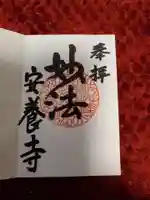 奉拝
妙法
安養寺